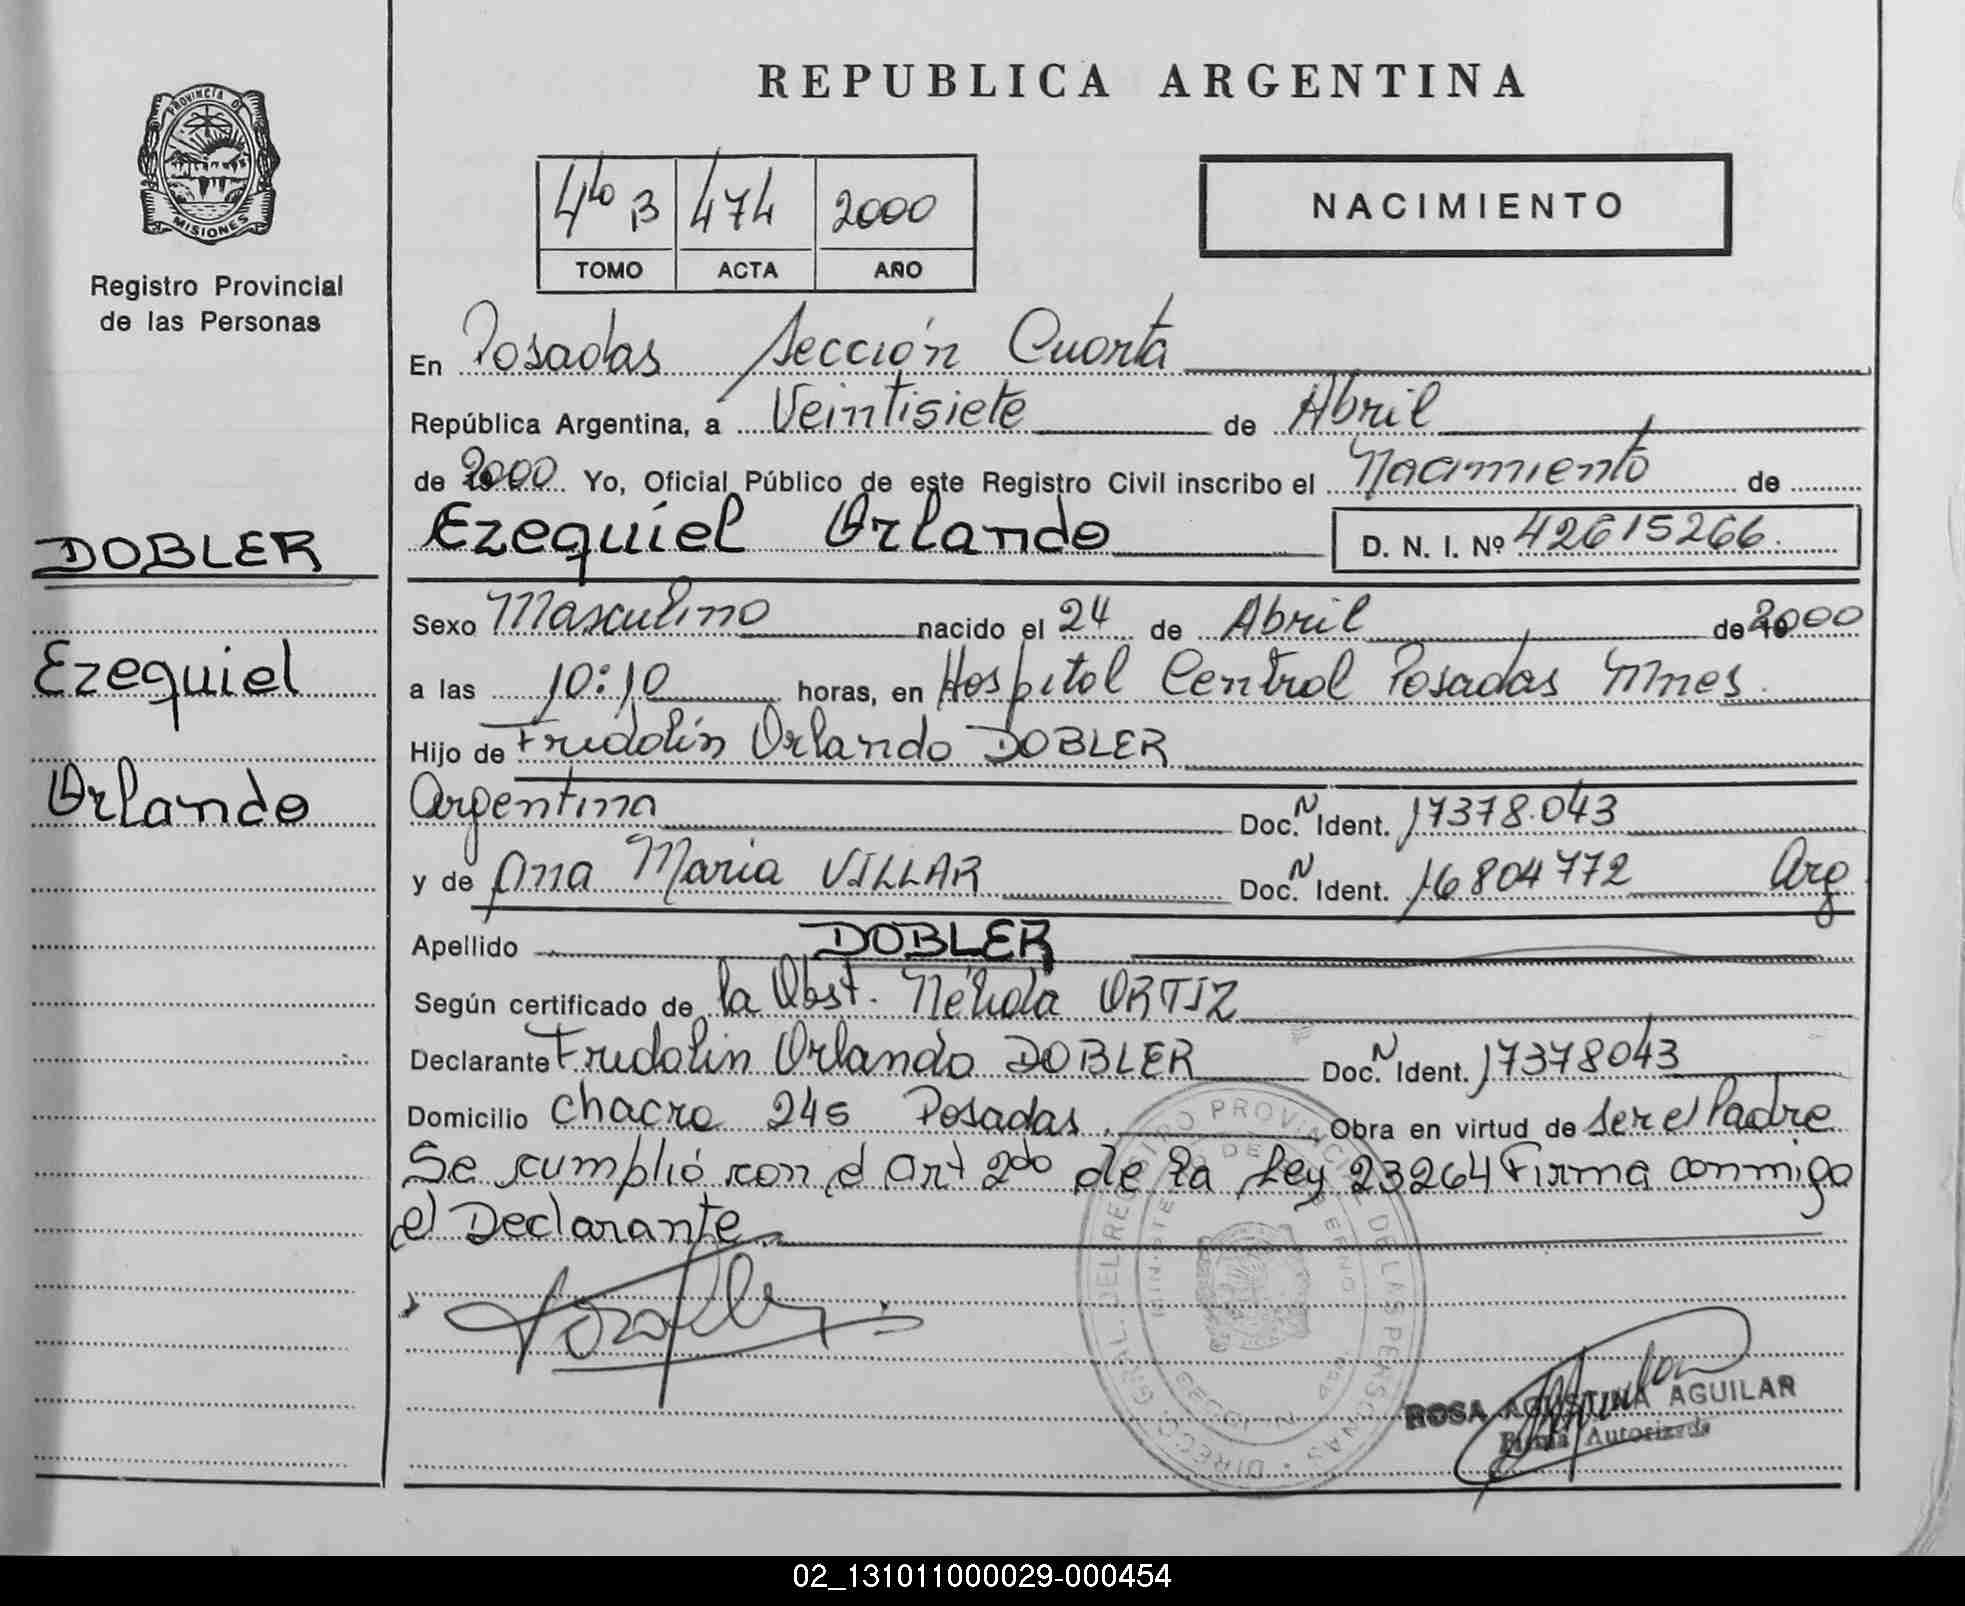 PROVINCIA DE
MISIONES
Registro Provincial
de las Personas
DOBLER
Ezequiel
Orlando
REPUBLICA ARGENTINA
4to B 474 2000
TOMO ACTA AÑO
NACIMIENTO
En Posadas Sección Cuarta
República Argentina, a Veintisiete de Abril
de 2000 Yo, Oficial Público de este Registro Civil inscribo el Nacimiento de
Ezequiel Orlando D. N. I. Nº 42615266.
Sexo Masculino nacido el 24 de Abril de 2000
a las 10:10 horas, en Hospital Central Posadas Mnes.
Hijo de Fridolin Orlando DOBLER
Argentina Doc. N Ident. 17378.043
y de Ana Maria VILLAR Doc. N Ident. 16804772 Arg
Apellido DOBLER
Según certificado de la Obst. Nélida ORTIZ
Declarante Fridolin Orlando DOBLER Doc. N Ident. 17378043
Domicilio chacra 245 Posadas. Obra en virtud de ser el Padre
Se cumplió con el art 2do de la Ley 23264 Firma conmigo
el Declarante.
DIRECC. GRAL. DEL REGISTRO PROVINCIAL DE LAS PERSONAS
MINISTERIO DE GOBIERNO
ROSA AGUSTINA AGUILAR
Firma Autorizada
02_131011000029-000454